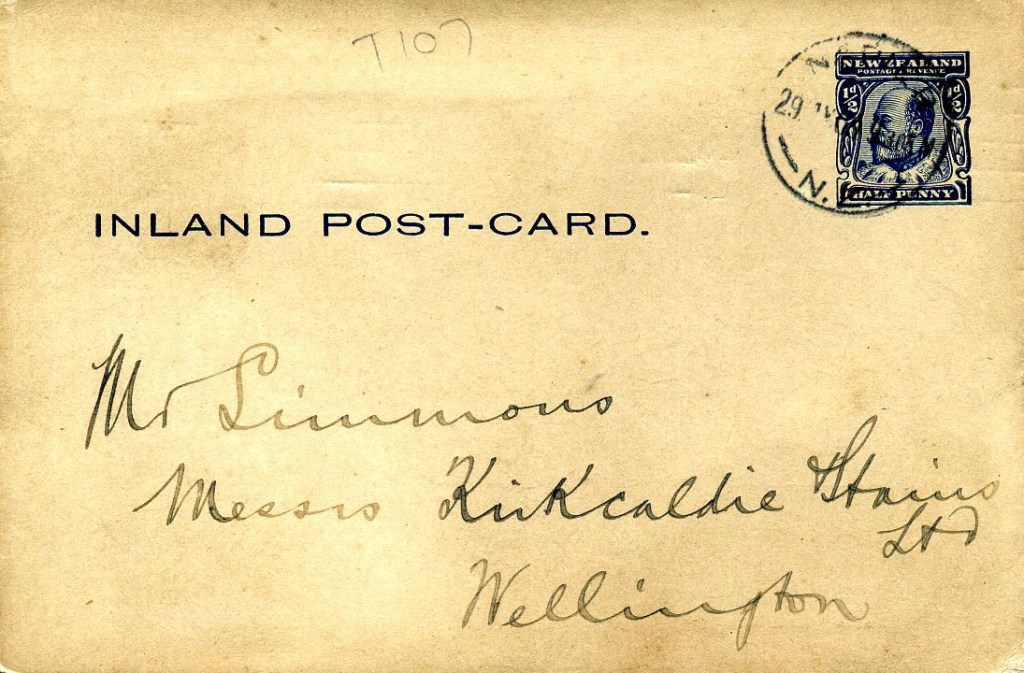 T107
NEW ZEALAND
POSTAGE & REVENUE
½d ½d
29
N.
HALF PENNY
INLAND POST-CARD.
Mr Simmons
Messrs Kirkcaldie Stains
Ltd
Wellington